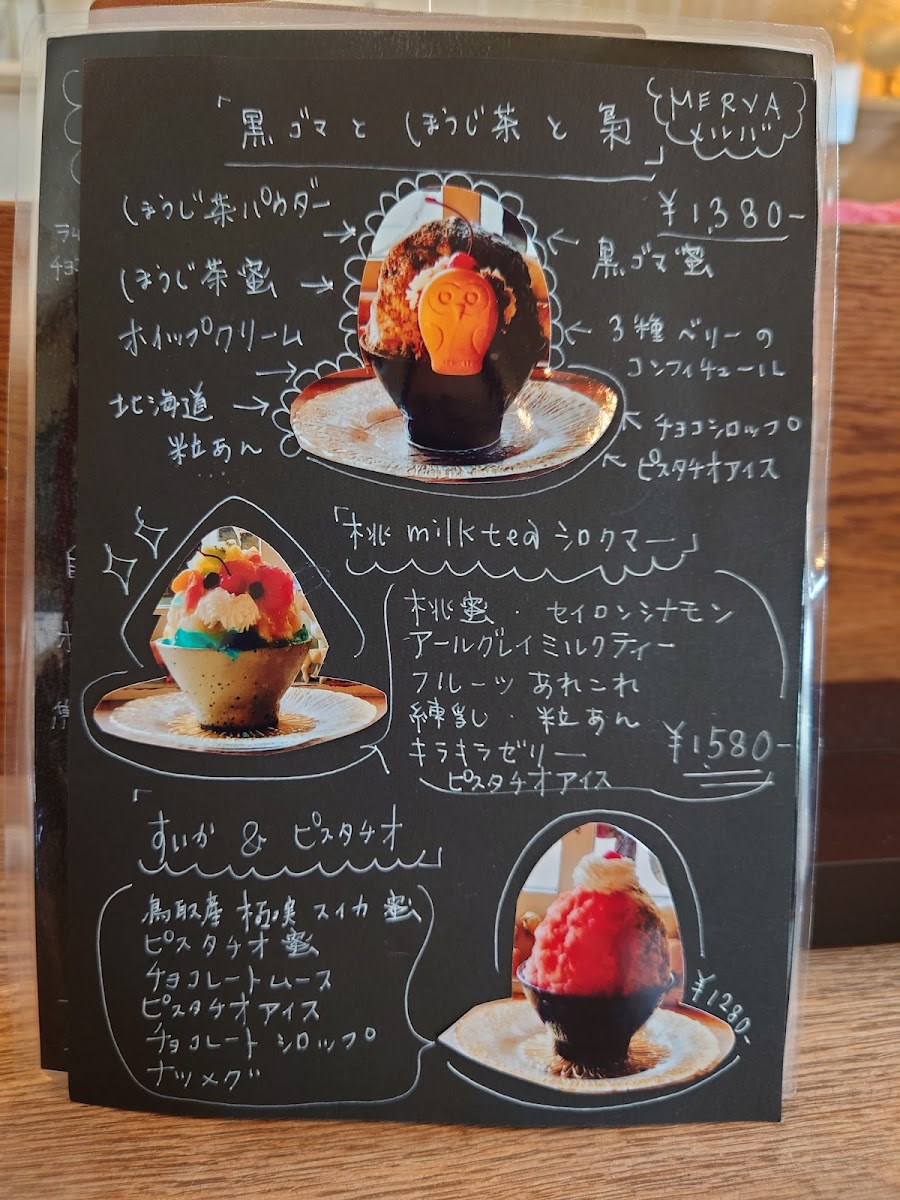 「黒ゴマと ほうじ茶と 梟」
MERVA
メルバ
¥1,380-
ほうじ茶パウダー
ほうじ茶蜜
ホイップクリーム
北海道
粒あん
黒ゴマ蜜
3種ベリーの
コンフィチュール
チョコシロップ
ピスタチオアイス
「桃 milk tea シロクマー」
桃蜜・セイロンシナモン
アールグレイミルクティー
フルーツ あれこれ
練乳・粒あん
キラキラゼリー
ピスタチオアイス
¥1,580-
「すいか & ピスタチオ」
鳥取産 極実スイカ蜜
ピスタチオ蜜
チョコレートムース
ピスタチオアイス
チョコレート シロップ
ナツメグ
¥1280-